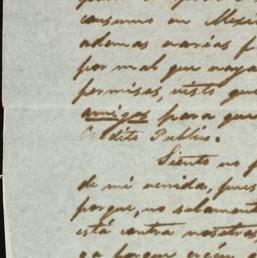 consumo en Mexi
ademas varias f
por mal que vaya
permisos, visto que
amigos para que
Crédito Publico.
Siento no p
de mi venida, pues
porque, no solament
está contra nosotros
ya porque creen